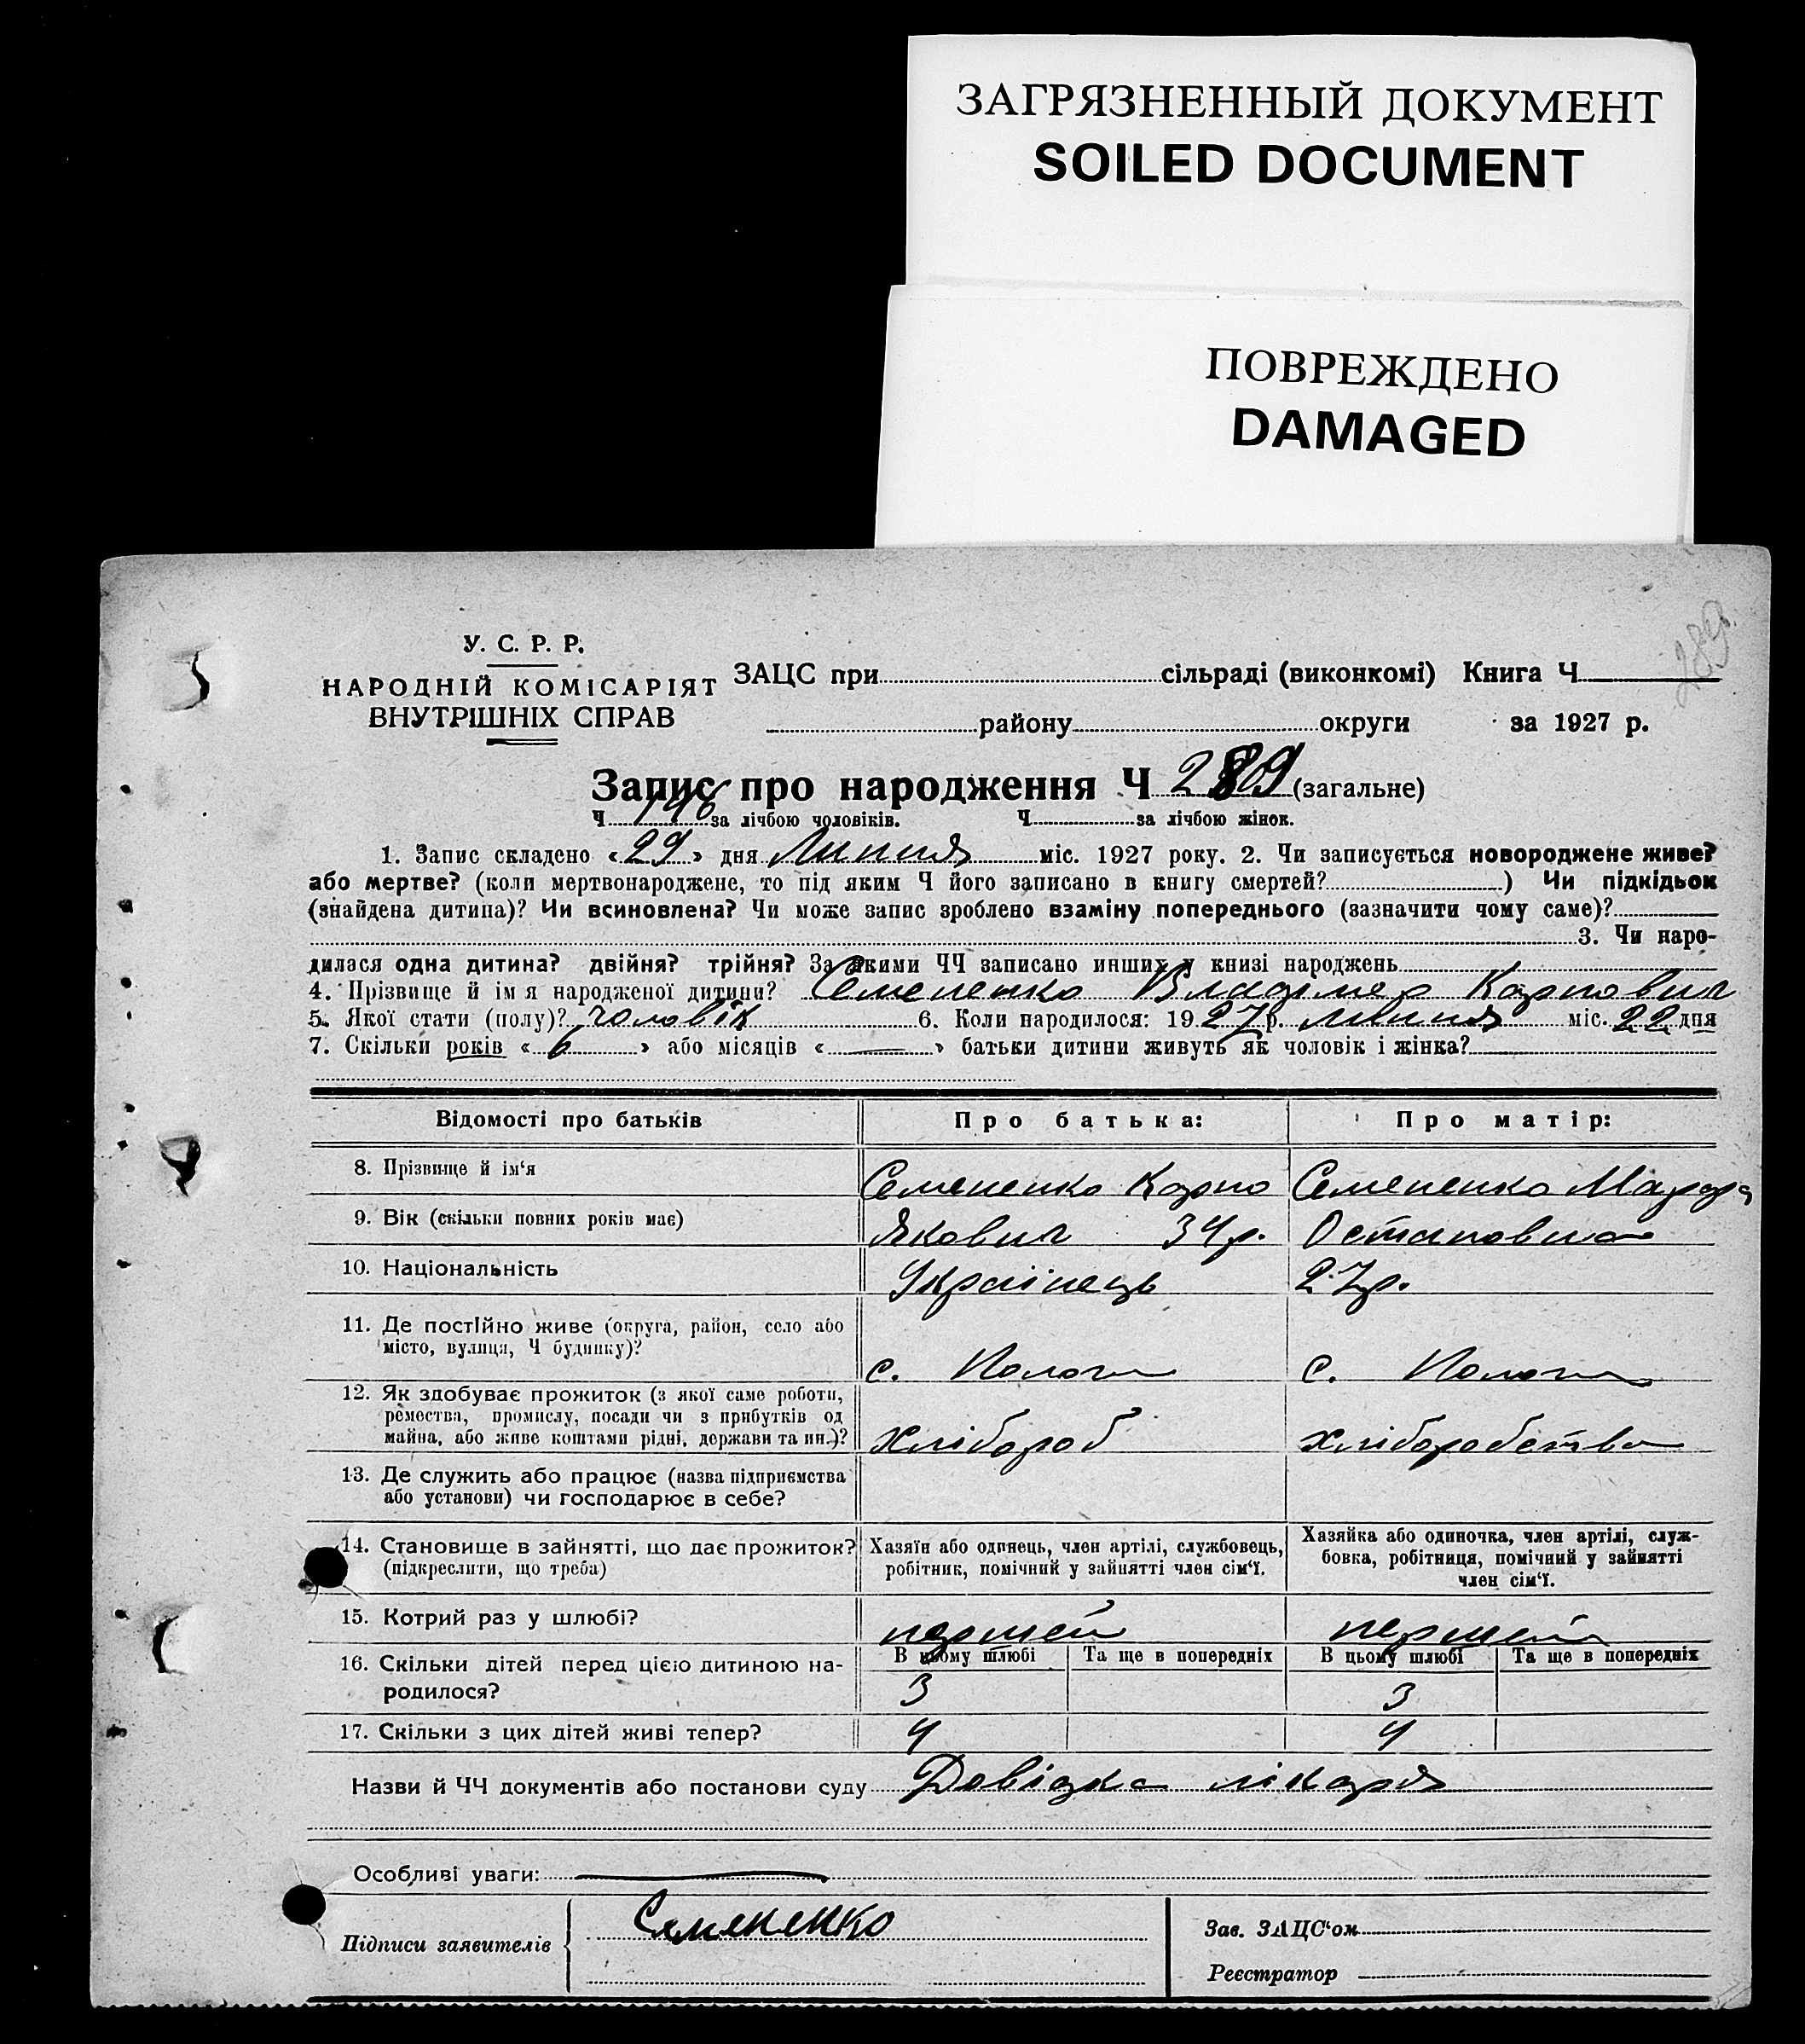 ЗАГРЯЗНЕННЫЙ ДОКУМЕНТ
SOILED DOCUMENT
ПОВРЕЖДЕНО
DAMAGED
289
У. С. Р. Р.
НАРОДНІЙ КОМІСАРІЯТ
ВНУТРІШНІХ СПРАВ
ЗАЦС при сільраді (виконкомі) Книга Ч
району округи за 1927 р.
Запис про народження Ч 289 (загальне)
Ч 146 за лічбою чоловіків. Ч за лічбою жінок.
1. Запис складено «29» дня Липня міс. 1927 року. 2. Чи записується новороджене живе?
або мертве? (коли мертвонароджене, то під яким Ч його записано в книгу смертей? ) Чи підкідьок
(знайдена дитина)? Чи всиновлена? Чи може запис зроблено взаміну попереднього (зазначити чому саме)?
3. Чи наро-
дилася одна дитина? двійня? трійня? За якими ЧЧ записано инших у книзі народжень
4. Прізвище й ім я народженої дитини? Семененко Владімер Карпович
5. Якої стати (полу)? чоловік 6. Коли народилося: 1927 р. липня міс. 22 дня
7. Скільки років «6» або місяців «—» батьки дитини живуть як чоловік і жінка?
Відомості про батьків Про батька: Про матір:
8. Прізвище й ім‘я Семененко Карпо Семененко
9. Вік (скільки повних років має) Якович 34р. Остаповна
10. Національність Українець 27р.
11. Де постійно живе (округа, район, село або
місто, вулиця, Ч будинку)? с. Пологи с. Пологи
12. Як здобуває прожиток (з якої саме роботи,
ремества, промислу, посади чи з прибутків од
майна, або живе коштами рідні, держави та ин.)? Хлібороб хліборобство
13. Де служить або працює (назва підприємства
або установи) чи господарює в себе?
14. Становище в зайнятті, що дає прожиток?
(підкреслити, що треба)
Хазяїн або одинець, член артілі, службовець,
робітник, помічний у зайнятті член сім‘ї.
Хазяйка або одиночка, член артілі, служ-
бовка, робітниця, помічний у зайнятті
член сім‘ї.
15. Котрий раз у шлюбі? первей первей
16. Скільки дітей перед цією дитиною на-
родилося?
В цьому шлюбі Та ще в попередніх В цьому шлюбі Та ще в попередніх
3 3
17. Скільки з цих дітей живі тепер? 4 4
Назви й ЧЧ документів або постанови суду Довідка лікаря
Особливі уваги: —
Підписи заявителів Семененко
Зав. ЗАЦС‘ом
Реєстратор